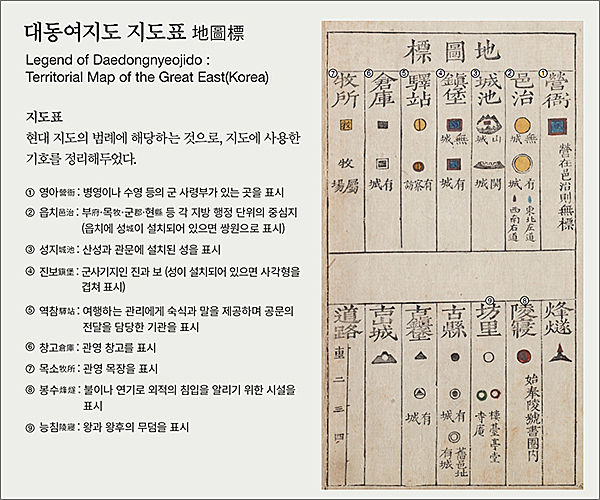 대동여지도 지도표 地圖標
Legend of Daedongnyeojido :
Territorial Map of the Great East(Korea)
지도표
현대 지도의 범례에 해당하는 것으로, 지도에 사용한
기호를 정리해두었다.
① 영아營衙 : 병영이나 수영 등의 군 사령부가 있는 곳을 표시
② 읍치邑治 : 부府·목牧·군郡·현縣 등 각 지방 행정 단위의 중심지
(읍치에 성城이 설치되어 있으면 쌍원으로 표시)
③ 성지城池 : 산성과 관문에 설치된 성을 표시
④ 진보鎭堡 : 군사기지인 진과 보 (성이 설치되어 있으면 사각형을
겹쳐 표시)
⑤ 역참驛站 : 여행하는 관리에게 숙식과 말을 제공하며 공문의
전달을 담당한 기관을 표시
⑥ 창고倉庫 : 관영 창고를 표시
⑦ 목소牧所 : 관영 목장을 표시
⑧ 봉수烽燧 : 불이나 연기로 외적의 침입을 알리기 위한 시설을
표시
⑨ 능침陵寢 : 왕과 왕후의 무덤을 표시
地圖標
① 營衙
營在邑治則無標
② 邑治
無城
有城
東北左道
西南右道
③ 城池
山城
關城
④ 鎭堡
無城
有城
⑤ 驛站
有察訪
⑥ 倉庫
有城
⑦ 牧所
牧場
屬場
烽燧
⑧ 陵寢
始奉陵號書圈內
⑨ 坊里
樓臺亭堂
寺庵
古縣
有城
舊邑址
有城
古鎭堡
有城
古城
道路
二
三
四